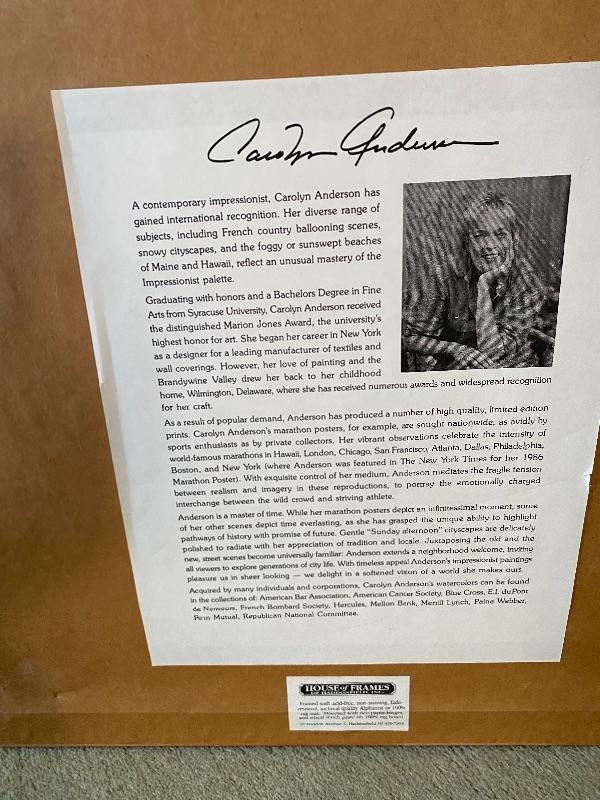 Carolyn Anderson
A contemporary impressionist, Carolyn Anderson has
gained international recognition. Her diverse range of
subjects, including French country ballooning scenes,
snowy cityscapes, and the foggy or sunswept beaches
of Maine and Hawaii, reflect an unusual mastery of the
Impressionist palette.
Graduating with honors and a Bachelors Degree in Fine
Arts from Syracuse University, Carolyn Anderson received
the distinguished Marion Jones Award, the university's
highest honor for art. She began her career in New York
as a designer for a leading manufacturer of textiles and
wall coverings. However, her love of painting and the
Brandywine Valley drew her back to her childhood
home, Wilmington, Delaware, where she has received numerous awards and widespread recognition
for her craft.
As a result of popular demand, Anderson has produced a number of high quality, limited edition
prints. Carolyn Anderson's marathon posters, for example, are sought nationwide, as avidly by
sports enthusiasts as by private collectors. Her vibrant observations celebrate the intensity of
world-famous marathons in Hawaii, London, Chicago, San Francisco, Atlanta, Dallas, Philadelphia,
Boston, and New York (where Anderson was featured in The New York Times for her 1986
Marathon Poster). With exquisite control of her medium, Anderson mediates the fragile tension
between realism and imagery in these reproductions, to portray the emotionally charged
interchange between the wild crowd and striving athlete.
Anderson is a master of time. While her marathon posters depict an infinitessimal moment, some
of her other scenes depict time everlasting, as she has grasped the unique ability to highlight
pathways of history with promise of future. Gentle "Sunday afternoon" cityscapes are delicately
polished to radiate with her appreciation of tradition and locale. Juxtaposing the old and the
new, street scenes become universally familiar: Anderson extends a neighborhood welcome, inviting
all viewers to explore generations of city life. With timeless appeal Anderson's impressionist paintings
pleasure us in sheer looking — we delight in a softened vision of a world she makes ours.
Acquired by many individuals and corporations, Carolyn Anderson's watercolors can be found
in the collections of: American Bar Association, American Cancer Society, Blue Cross, E.I. duPont
de Nemours, French Bombard Society, Hercules, Mellon Bank, Merrill Lynch, Paine Webber,
Penn Mutual, Republican National Committee.
HOUSE of FRAMES
OF HADDONFIELD, INC.
Framed with acid-free, non-staining, fade-
resistant, archival quality Alphamat or 100%
rag mat. Mounted with rice paper hinges
and wheat starch paste on 100% rag board.
Avenue Haddonfield NJ